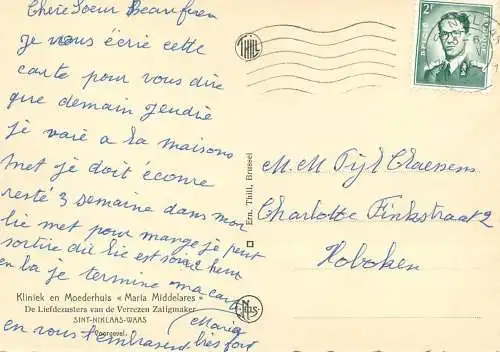 Chère Soeur Beaufrere
je vous écrie cette
carte pour vous dire
que demain jeudie
je vais a la maisons
met je doit écore
resté 3 semaine dans mon
lie met pour mange je peut
sortire dit lie est soire heur
en la je termine ma car
Maria
en vous t'embrasend très fort
Kliniek en Moederhuis « Maria Middelares »
De Liefdezusters van de Verrezen Zaligmaker
SINT-NIKLAAS-WAAS
Voorgevel.
THILL
Ern. Thill, Brussel
NELS
2F
M.M Pijl Claessens
Charlotte Finkstraat 2
Hoboken